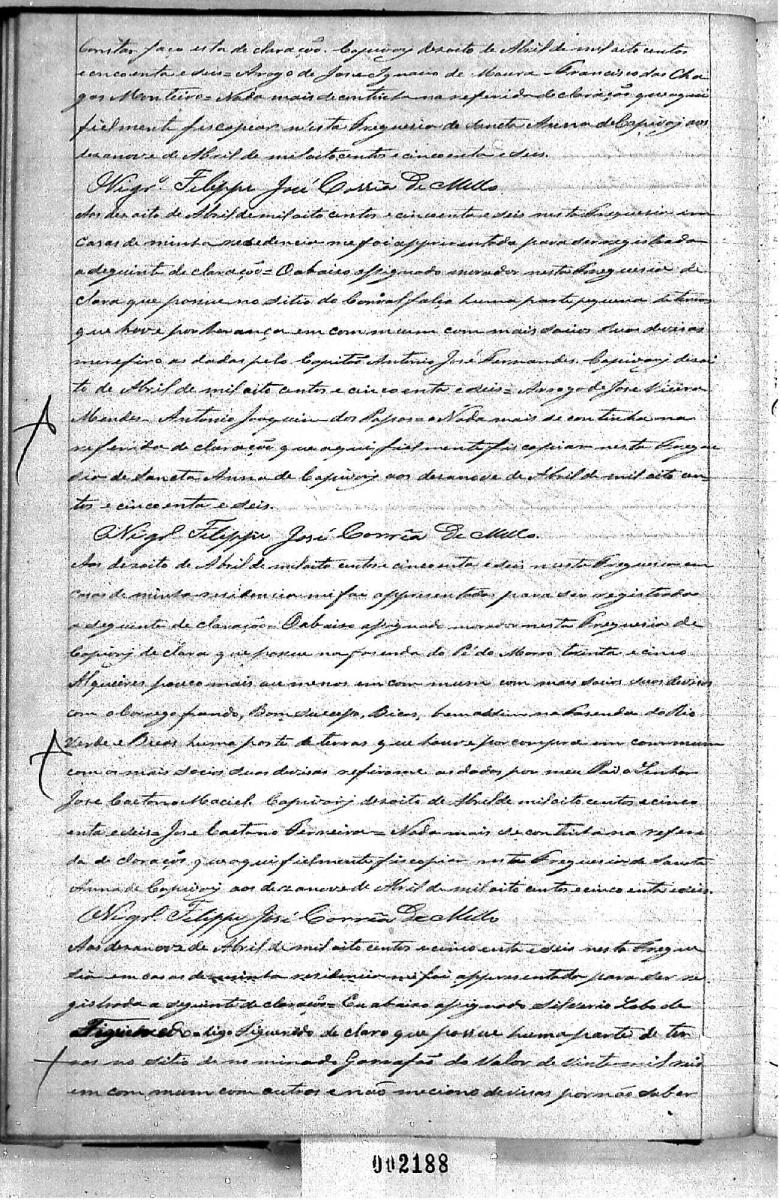 Constar faço esta declaração. Capivary desoito de Abril de mil oito centos
e cincoenta e seis = Arogo de José Ignacio de Moura - Francisco das Cha
gas Monteiro = Nada mais se continha na referida de claração que aqui
fielmente fis copiar n'esta Freguesia de Sancta Anna de Capivary aos
desanove de Abril de mil oito centos e cincoenta e seis.
O Vigrº. Filippe José Corrêa De Mello
Aos desoito de Abril de mil oito centos e cincoenta e seis nesta Freguesia em
casas de minha residencia me foi appresentada para ser registrada
a seguinte de claração = O abaixo assignado morador nesta Freguesia de
clara que possue no sitio do huma parte pequena de terras
que houve por herança em com mum com mais socios suas divisas
me refiro as dadas pelo Capitão Antonio José Fernandes. Capivary desoi
to de Abril de mil oito centos e cincoenta e seis = Arrogo de José Vieira
Mendes - Antonio Joaquim dos Passos = Nada mais se continha na
referida de claração que aqui fielmente fis copiar nesta Fregue
sia de Sancta Anna de Capivary aos desanove de Abril de mil oito cen
tos e cincoenta e seis.
O Vigrº. Filippe José Corrêa De Mello.
Aos desoito de Abril de mil oito centos e cincoenta e seis nesta Freguesia em
casas de minha residencia mi foi appresentada para ser registrada
a seguinte de claração = O abaixo assignado morador nesta Freguesia de
Capivary de clara que possue na fasenda do Pé do Morro trinta e cinco
Alqueires pouco mais ou menos em com mum com mais socios suas divisas
com o Corrego fundo, Bom Sucesso, Bicas, bem assim na Fasenda do Rio
Verde e Bicas huma parte de terras que houve por compra em com mum
com os mais socios suas divisas refirome as dadas por meu Pai o Senhor
José Caetano Maciel. Capivary desoito de Abril de mil oito centos e cinco
enta e seis = José Caetano Ferreira = Nada mais se continha na referi
da de claração que aqui fielmente fis copiar nesta Freguesia de Sancta
Anna de Capivary aos desanove de Abril de mil oito centos e cincoenta e seis.
O Vigrº. Filippe José Corrêa De Mello
Aos desanove de Abril de mil oito centos e cincoenta e seis nesta Fregue
sia em casas de minha residencia mi foi appresentada para ser re
gistrada a seguinte de claração = Eu abaixo assignado Silverio Lobo de
Figueired digo Figueredo de claro que possue huma parte de ter
ras no sitio de nominado Garrafão do Valor de vinte mil reis
em com mum com outros e não meciono devisas por não saber
002188